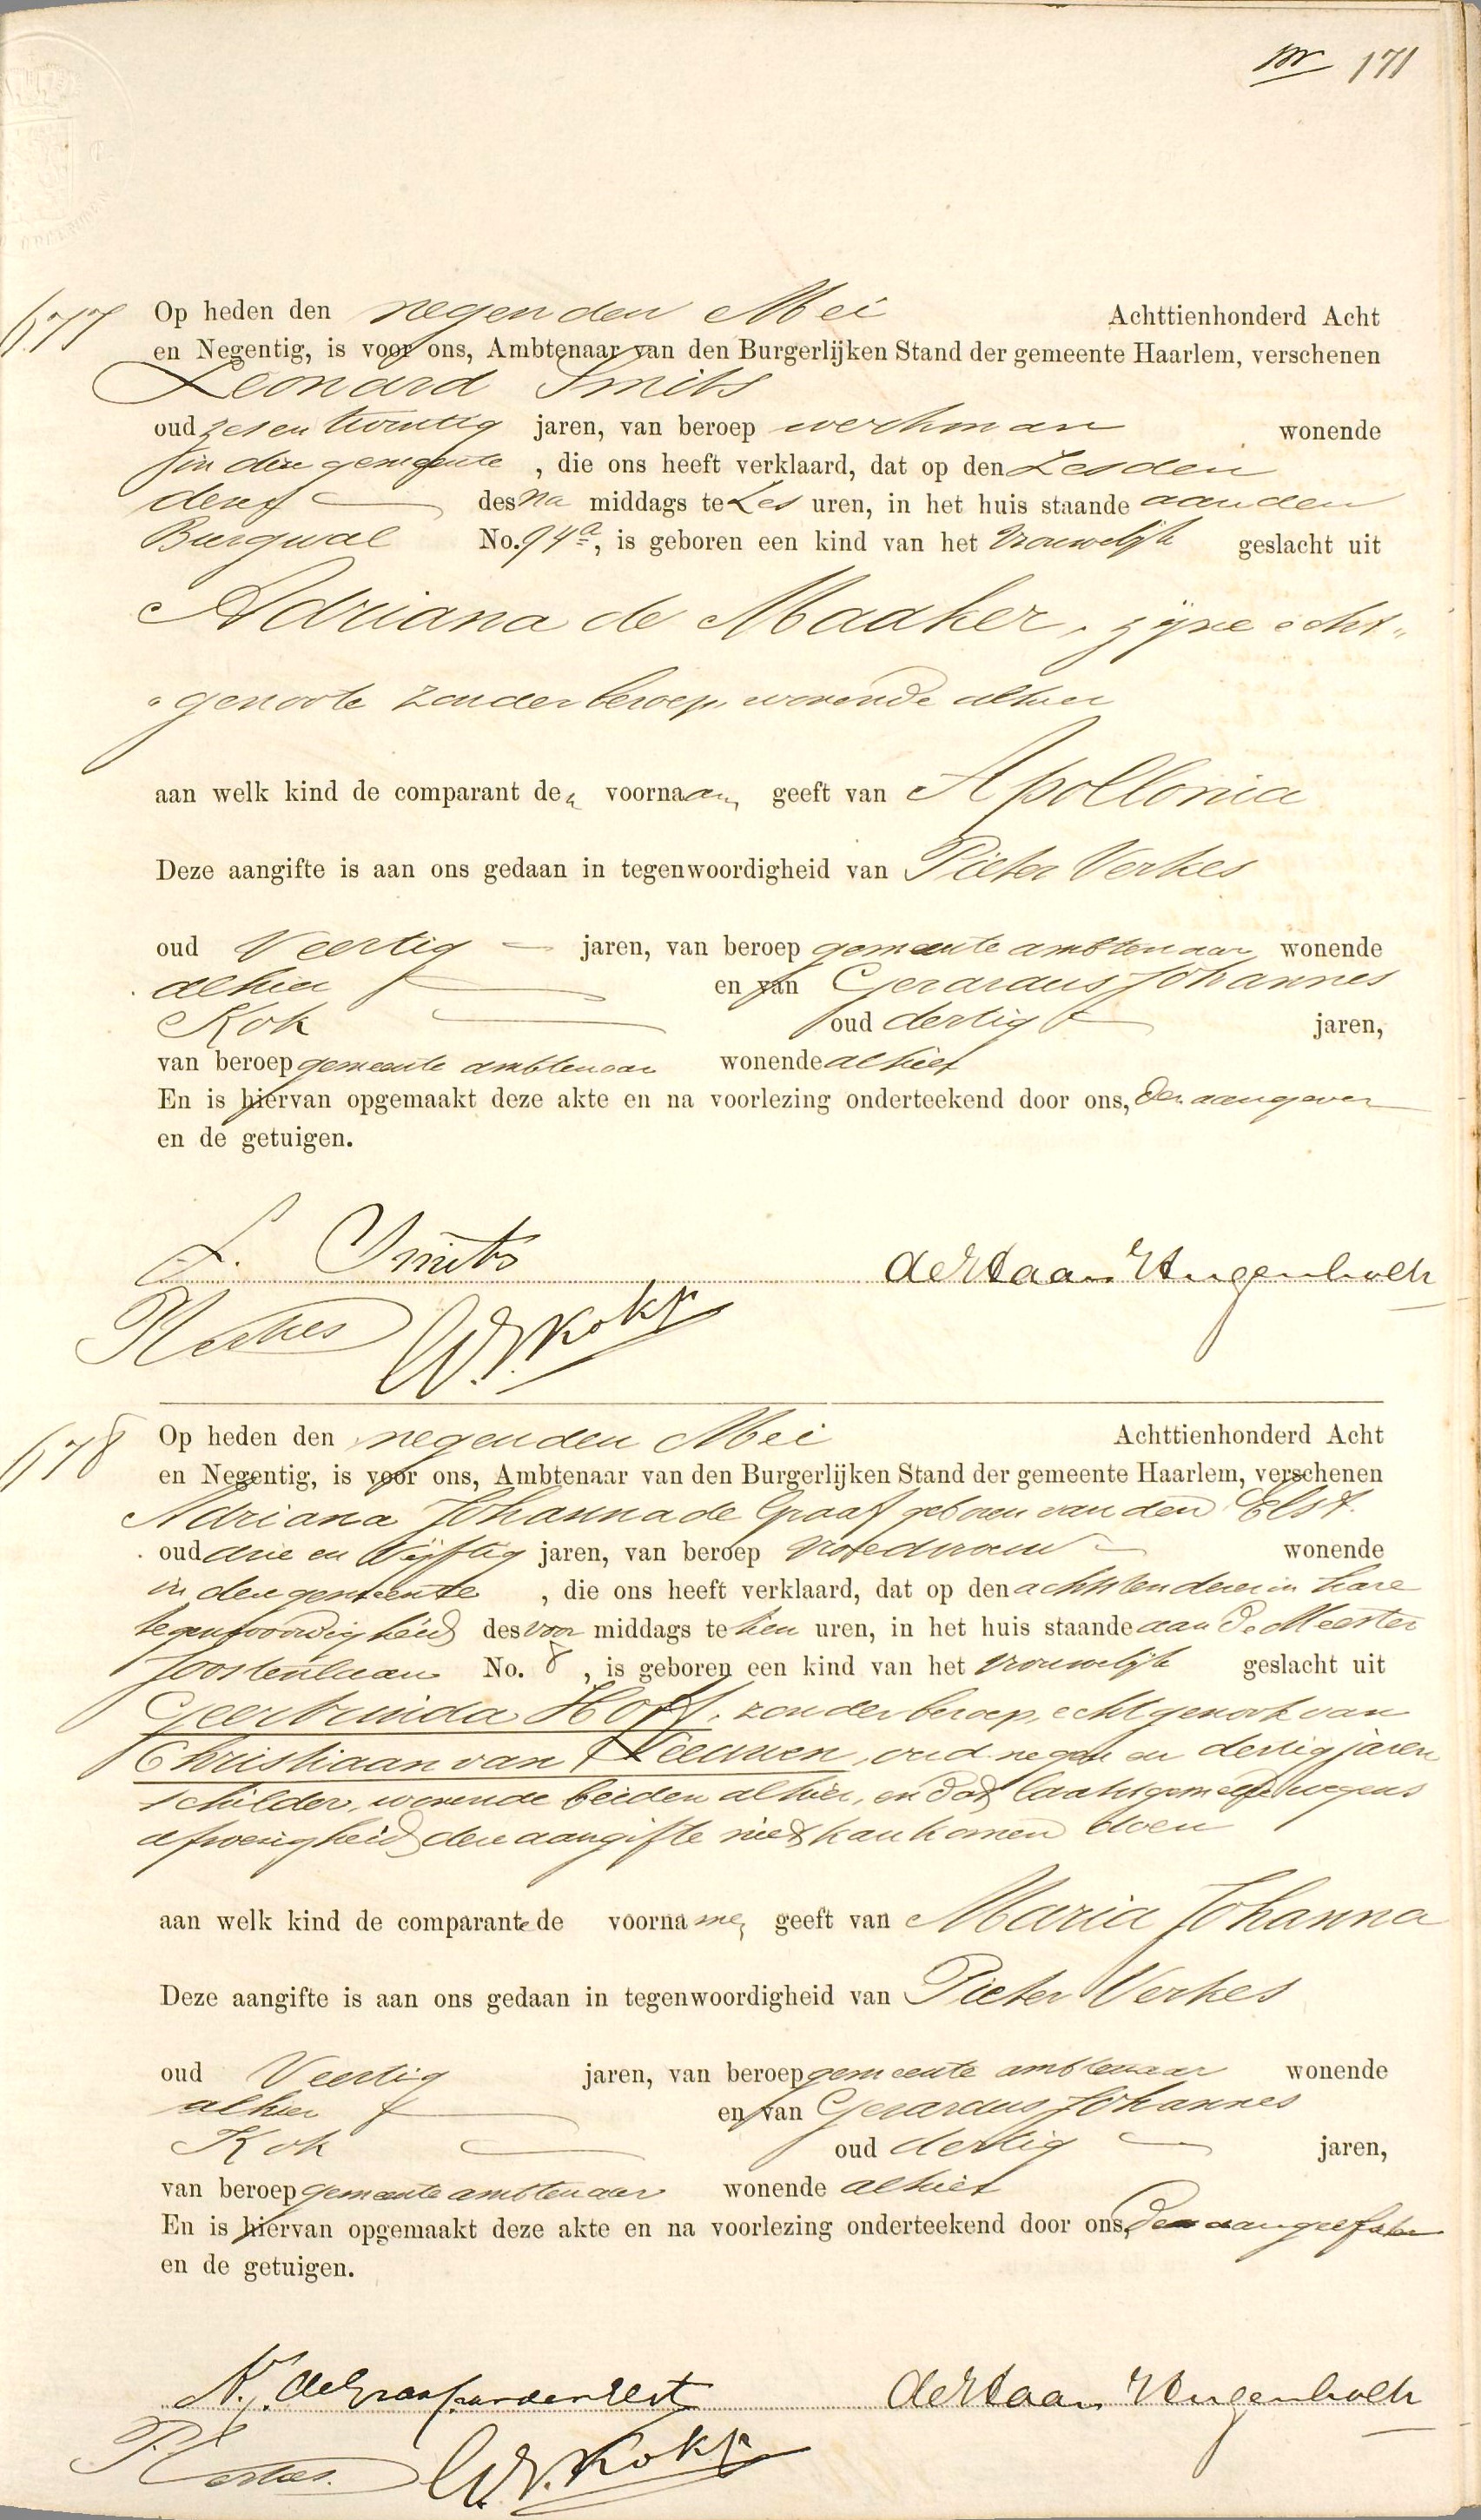 nr 171
677
Op heden den negenden Mei Achttienhonderd Acht
en Negentig, is voor ons, Ambtenaar van den Burgerlijken Stand der gemeente Haarlem, verschenen
Leonard Smits
oud zesentwintig jaren, van beroep werkman wonende
in deze gemeente, die ons heeft verklaard, dat op den zesden
dezer des na middags te zes uren, in het huis staande aan den
Burgwal No. 94a, is geboren een kind van het vrouwelijk geslacht uit
Adriana de Maaker, zijne echt„
„genoote zonder beroep, wonende alhier
aan welk kind de comparant den voornaam geeft van Apollonia
Deze aangifte is aan ons gedaan in tegenwoordigheid van Pieter Verkes
oud Veertig jaren, van beroep gemeente ambtenaar wonende
alhier en van Gerardus Johannes
Kok oud dertig jaren,
van beroep gemeente ambtenaar wonende alhier
En is hiervan opgemaakt deze akte en na voorlezing onderteekend door ons, den aangever
en de getuigen.
L. Smits de Haan Hugenholtz
PVerkes GJ. Kok
678
Op heden den negenden Mei Achttienhonderd Acht
en Negentig, is voor ons, Ambtenaar van den Burgerlijken Stand der gemeente Haarlem, verschenen
Adriana Johanna de Graaf geboren van den Elst
oud drie en Vijftig jaren, van beroep vroedvrouw wonende
in deze gemeente, die ons heeft verklaard, dat op den achtsten dezer in hare
tegenwoordigheid des voor middags te tien uren, in het huis staande aan de Meester
Joostenlaan No. 8, is geboren een kind van het vrouwelijk geslacht uit
Geertruida Hoff, zonder beroep, echtgenoote van
Christiaan van Leeuwen, oud negen en dertig jaren
schilder, wonende beiden alhier, en dat laatstgemelde wegens
afwezigheid deze aangifte niet kan komen doen
aan welk kind de comparante de voorname, geeft van Maria Johanna
Deze aangifte is aan ons gedaan in tegenwoordigheid van Pieter Verkes
oud Veertig jaren, van beroep gemeente ambtenaar wonende
alhier en van Gerardus Johannes
Kok oud dertig jaren,
van beroep gemeente ambtenaar wonende alhier
En is hiervan opgemaakt deze akte en na voorlezing onderteekend door ons, de aangeefster
en de getuigen.
A.J. de Graaf. van den Elst de Haan Hugenholtz
PVerkes. GJ. Kok